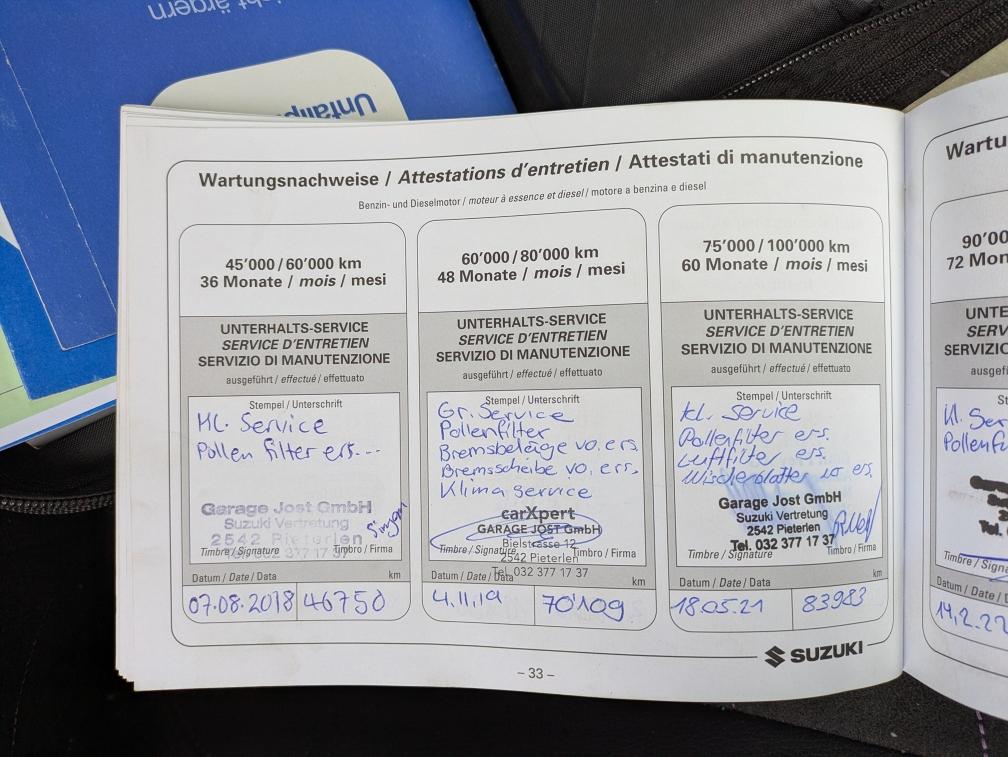 nicht ärgern
Wartungsnachweise / Attestations d'entretien / Attestati di manutenzione
Benzin- und Dieselmotor / moteur à essence et diesel / motore a benzina e diesel
45'000 / 60'000 km
36 Monate / mois / mesi
UNTERHALTS-SERVICE
SERVICE D'ENTRETIEN
SERVIZIO DI MANUTENZIONE
ausgeführt / effectué / effettuato
Stempel / Unterschrift
Kl. Service
Pollen filter ers.--
Garage Jost GmbH
Suzuki Vertretung
2542 Pieterlen
Timbre / Signature
Timbro / Firma
Datum / Date / Data
km
07.08.2018
46750
60'000 / 80'000 km
48 Monate / mois / mesi
UNTERHALTS-SERVICE
SERVICE D'ENTRETIEN
SERVIZIO DI MANUTENZIONE
ausgeführt / effectué / effettuato
Stempel / Unterschrift
Gr. Service
Pollenfilter
Bremsbeläge vo. ers.
Bremsscheibe vo. ers.
Klima service
carXpert
GARAGE JOST GmbH
Bielstrasse 12
2542 Pieterlen
Timbre / Signature
Timbro / Firma
Tel. 032 377 17 37
Datum / Date / Data
km
4.11.19
70'109
75'000 / 100'000 km
60 Monate / mois / mesi
UNTERHALTS-SERVICE
SERVICE D'ENTRETIEN
SERVIZIO DI MANUTENZIONE
ausgeführt / effectué / effettuato
Stempel / Unterschrift
kl. Service
Pollenfilter ers.
Luftfilter ers.
Wischerblätter vo ers.
Garage Jost GmbH
Suzuki Vertretung
2542 Pieterlen
Tel. 032 377 17 37
Timbre / Signature
Timbro / Firma
Datum / Date / Data
km
18.05.21
83983
SUZUKI
– 33 –
Wartu
90'00
72 Mon
UNTE
SERV
SERVIZIO
ausgef
St
Kl. Ser
Pollenf
Tel.
Timbre / Signa
Datum / Date / D
14.2.22